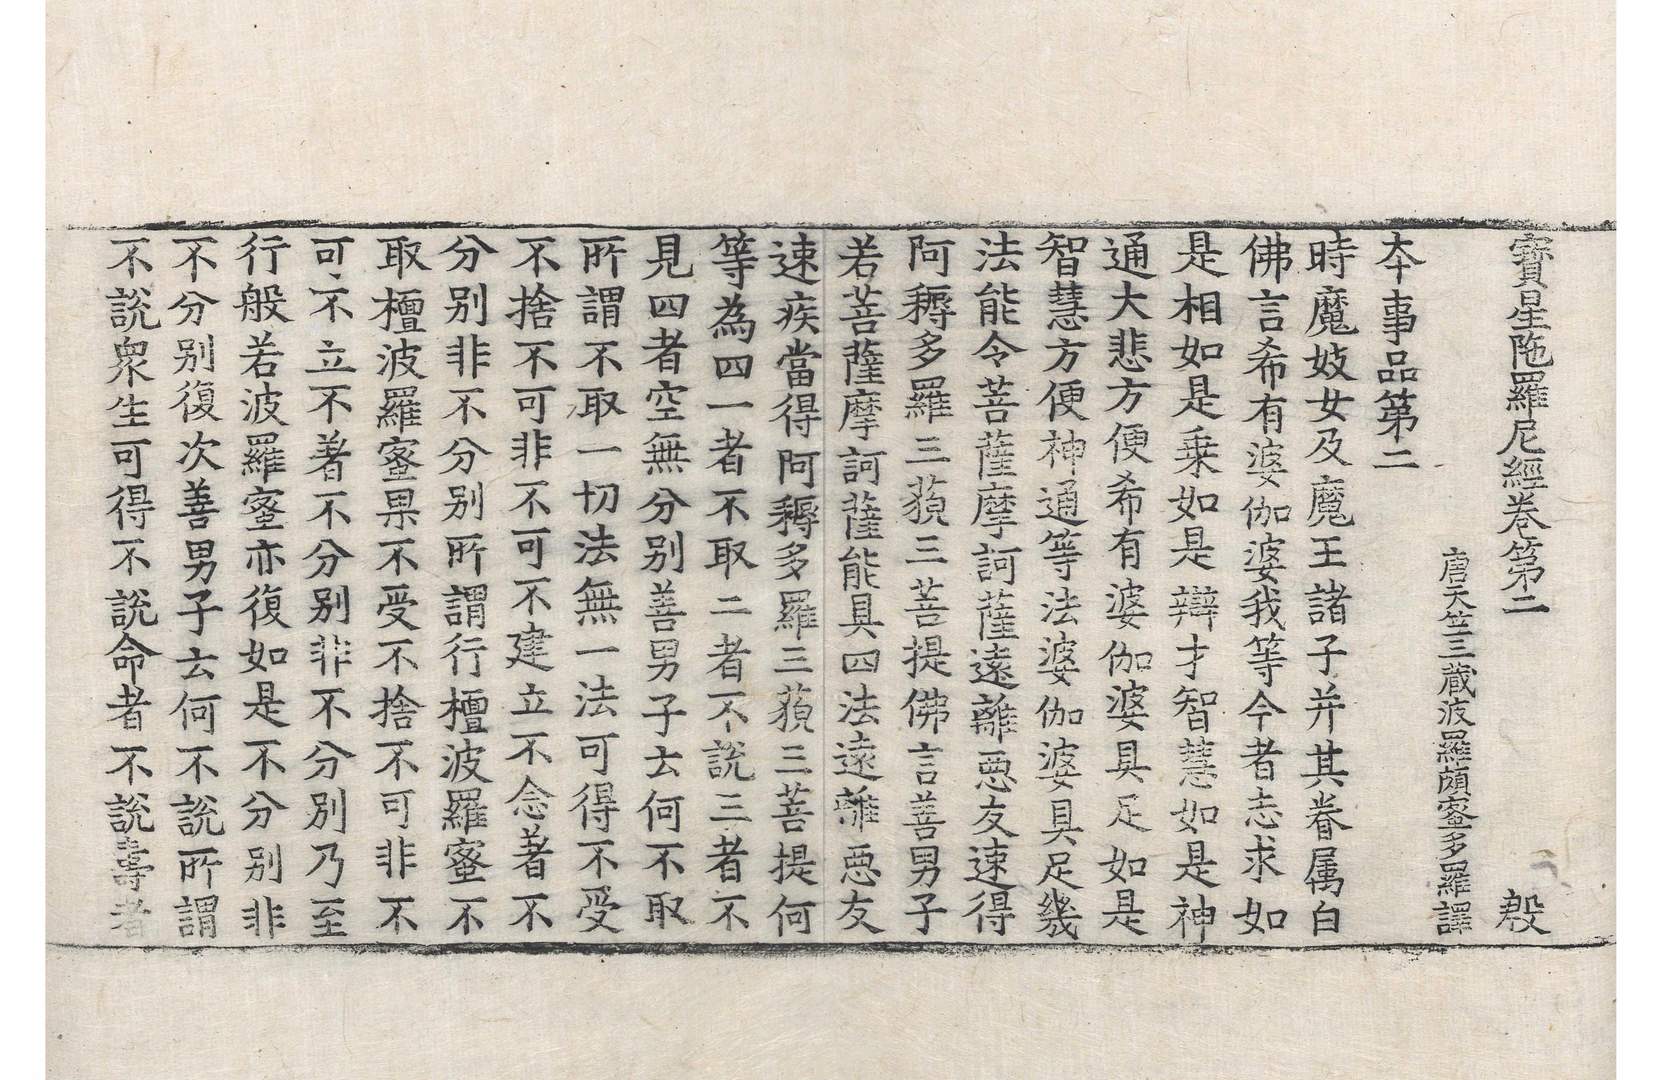 寶星陁羅尼經卷第二 殷
唐天竺三藏波羅頗蜜多羅譯
本事品第二
時魔妓女及魔王諸子并其眷属白
佛言希有婆伽婆我等今者志求如
是相如是乗如是辯才智慧如是神
通大悲方便希有婆伽婆具足如是
智慧方便神通等法婆伽婆具足幾
法能令菩薩摩訶薩遠離惡友速得
阿耨多羅三藐三菩提佛言善男子
若菩薩摩訶薩能具四法遠離惡友
速疾當得阿耨多羅三藐三菩提何
等為四一者不取二者不說三者不
見四者空無分别善男子云何不取
所謂不取一切法無一法可得不受
不捨不可非不可不建立不念著不
分别非不分别所謂行檀波羅蜜不
取檀波羅蜜果不受不捨不可非不
可不立不著不分别非不分別乃至
行般若波羅蜜亦復如是不分别非
不分别復次善男子云何不說所謂
不說衆生可得不說命者不說壽者